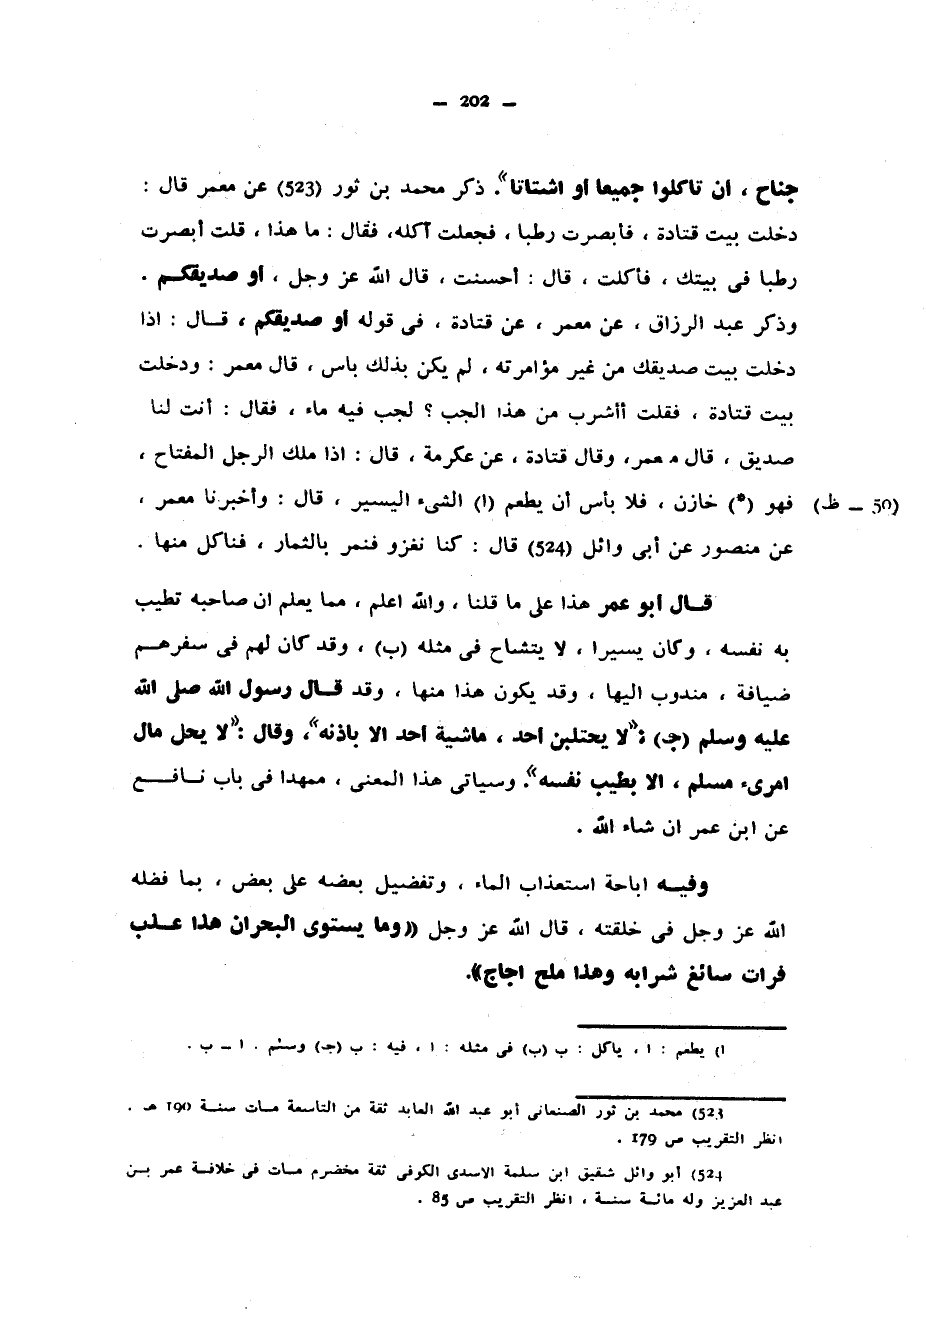 — 202 —
جناح ، ان تاكلوا جميعا او اشتاتا». ذكر محمد بن ثور (523) عن معمر قال :
دخلت بيت قتادة ، فأبصرت رطبا ، فجعلت آكله، فقال : ما هذا ، قلت أبصرت
رطبا فى بيتك ، فأكلت ، قال : أحسنت ، قال الله عز وجل ، أو صديقكم .
وذكر عبد الرزاق ، عن معمر ، عن قتادة ، فى قوله أو صديقكم ، قال : اذا
دخلت بيت صديقك من غير مؤامرته ، لم يكن بذلك باس ، قال معمر : ودخلت
بيت قتادة ، فقلت أأشرب من هذا الجب ؟ لجب فيه ماء ، فقال : أنت لنا
صديق ، قال معمر، وقال قتادة ، عن عكرمة ، قال : اذا ملك الرجل المفتاح ،
(50 — ظ) فهو (*) خازن ، فلا بأس أن يطعم (ا) الشىء اليسير ، قال : وأخبرنا معمر ،
عن منصور عن أبى وائل (524) قال : كنا نغزو فنمر بالثمار ، فناكل منها .
قال أبو عمر هذا على ما قلنا ، والله اعلم ، مما يعلم ان صاحبه تطيب
به نفسه ، وكان يسيرا ، لا يتشاح فى مثله (ب) ، وقد كان لهم فى سفرهم
ضيافة ، مندوب اليها ، وقد يكون هذا منها ، وقد قال رسول الله صلى الله
عليه وسلم (جـ) : «لا يحتلبن احد ، ماشية احد الا باذنه»، وقال : «لا يحل مال
امرىء مسلم ، الا بطيب نفسه». وسياتى هذا المعنى ، ممهدا فى باب نافع
عن ابن عمر ان شاء الله .
وفيه اباحة استعذاب الماء ، وتفضيل بعضه على بعض ، بما فضله
الله عز وجل فى خلقته ، قال الله عز وجل ((وما يستوى البحران هذا عذب
فرات سائغ شرابه وهذا ملح اجاج)).
ا) يطعم : ا ، ياكل : ب (ب) فى مثله : ا ، فيه : ب (جـ) وسلم . ا — ب .
523) محمد بن ثور الصنعانى أبو عبد الله العابد ثقة من التاسعة مات سنة 190 هـ .
انظر التقريب ص 179 .
524) أبو وائل شقيق ابن سلمة الاسدى الكوفى ثقة مخضرم مات فى خلافة عمر بن
عبد العزيز وله مائة سنة ، انظر التقريب ص 85 .